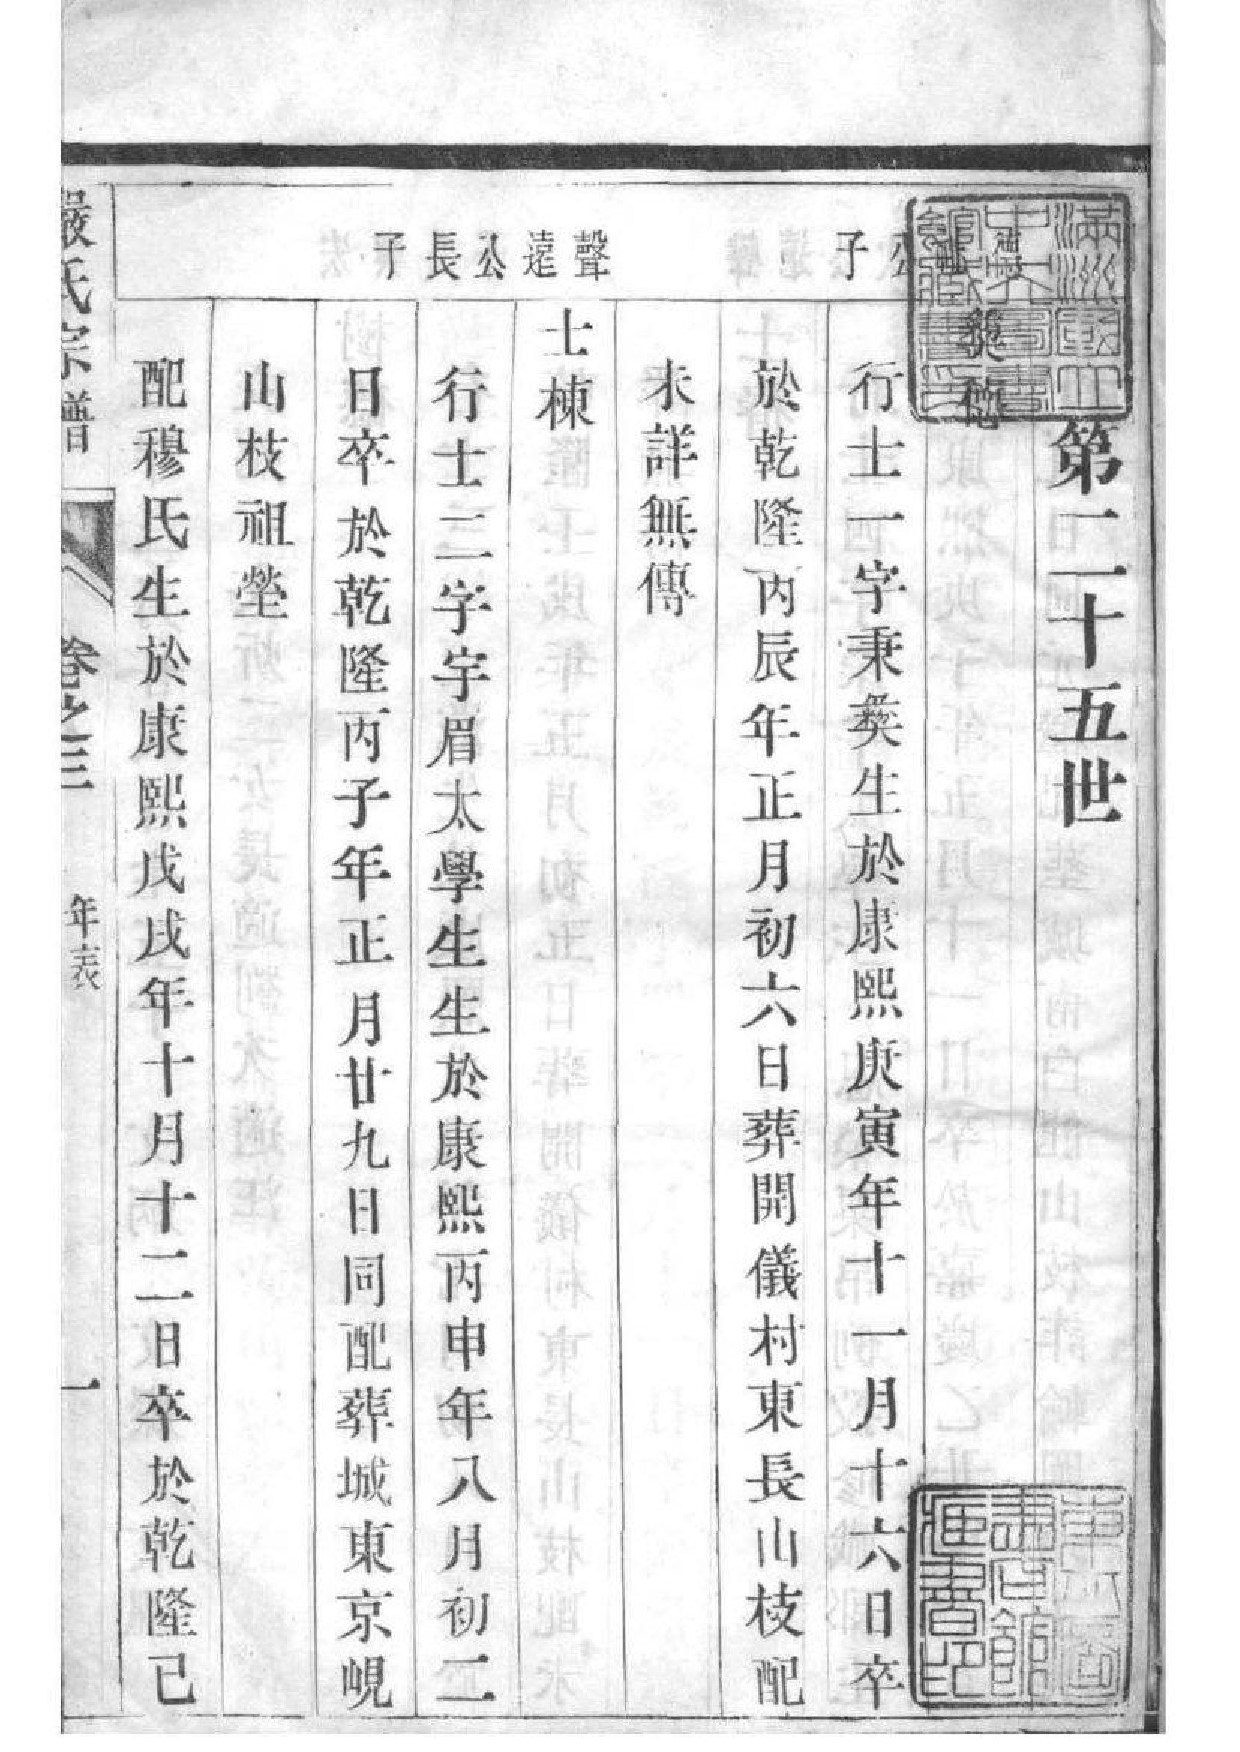 第二十五世
公子
行士一字秉彜生於康熙庚寅年十一月十六日卒
於乾隆丙辰年正月初六日葬開儀村東長山枝配
未詳無傳
聲遠公長子
士棟
行士二字宇眉太學生生於康熙丙申年八月初二
日卒於乾隆丙子年正月廿九日同配葬城東京峴
山枝祖塋
配穆氏生於康熙戊戌年十月十二日卒於乾隆己
嚴氏宗譜
卷之三
年表
一